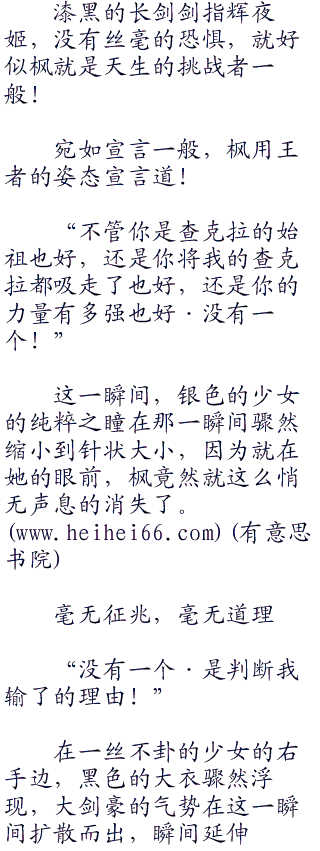 漆黑的长剑剑指辉夜
姬，没有丝毫的恐惧，就好
似枫就是天生的挑战者一
般！
宛如宣言一般，枫用王
者的姿态宣言道！
“不管你是查克拉的始
祖也好，还是你将我的查克
拉都吸走了也好，还是你的
力量有多强也好·没有一
个！”
这一瞬间，银色的少女
的纯粹之瞳在那一瞬间骤然
缩小到针状大小，因为就在
她的眼前，枫竟然就这么悄
无声息的消失了。
(www.heihei66.com)(有意思
书院)
毫无征兆，毫无道理
“没有一个·是判断我
输了的理由！”
在一丝不卦的少女的右
手边，黑色的大衣骤然浮
现，大剑豪的气势在这一瞬
间扩散而出，瞬间延伸